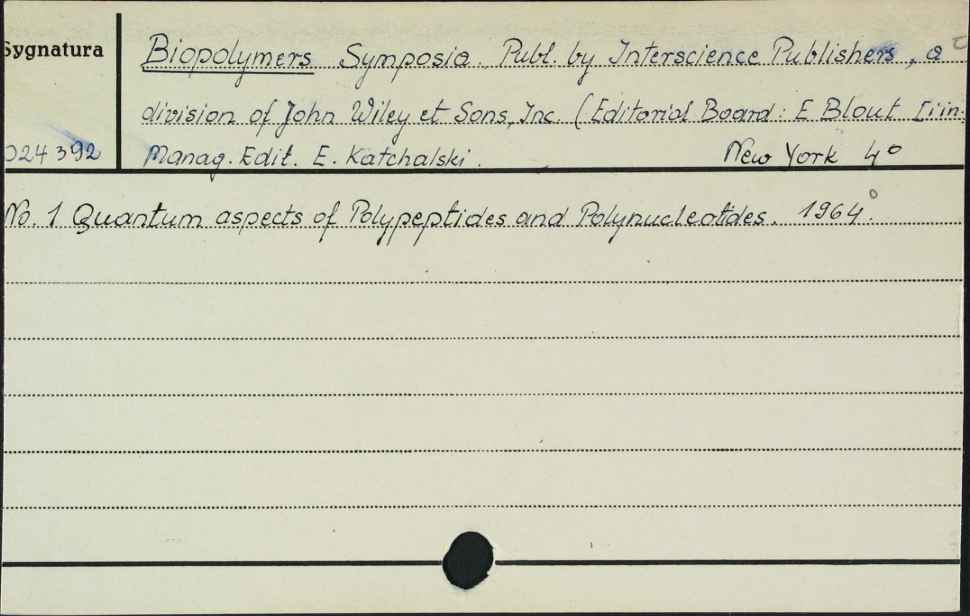 Sygnatura
Biopolymers Symposia. Publ. by Interscience Publishers, a
division of John Wiley et Sons, Inc. (Editorial Board: E Blout [i in.
024392 Manag. Edit. E. Katchalski. New York 4°
No. 1 Quantum aspects of Polypeptides and Polynucleotides. 1964.